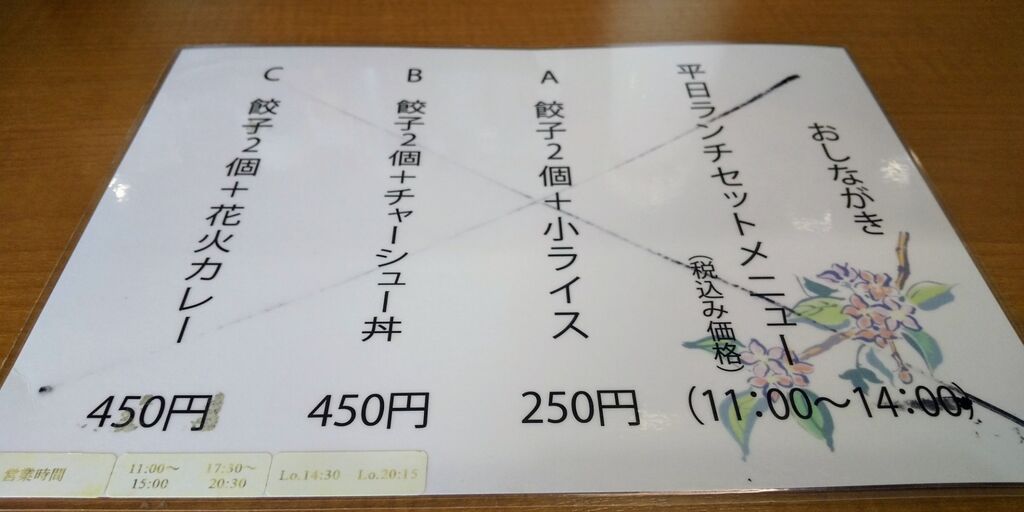 おしながき
平日ランチセットメニュー
(税込み価格)
(11:00〜14:00)
A 餃子2個+小ライス
250円
B 餃子2個+チャーシュー丼
450円
C 餃子2個+花火カレー
450円
営業時間
11:00〜15:00
17:30〜20:30
Lo.14:30 Lo.20:15